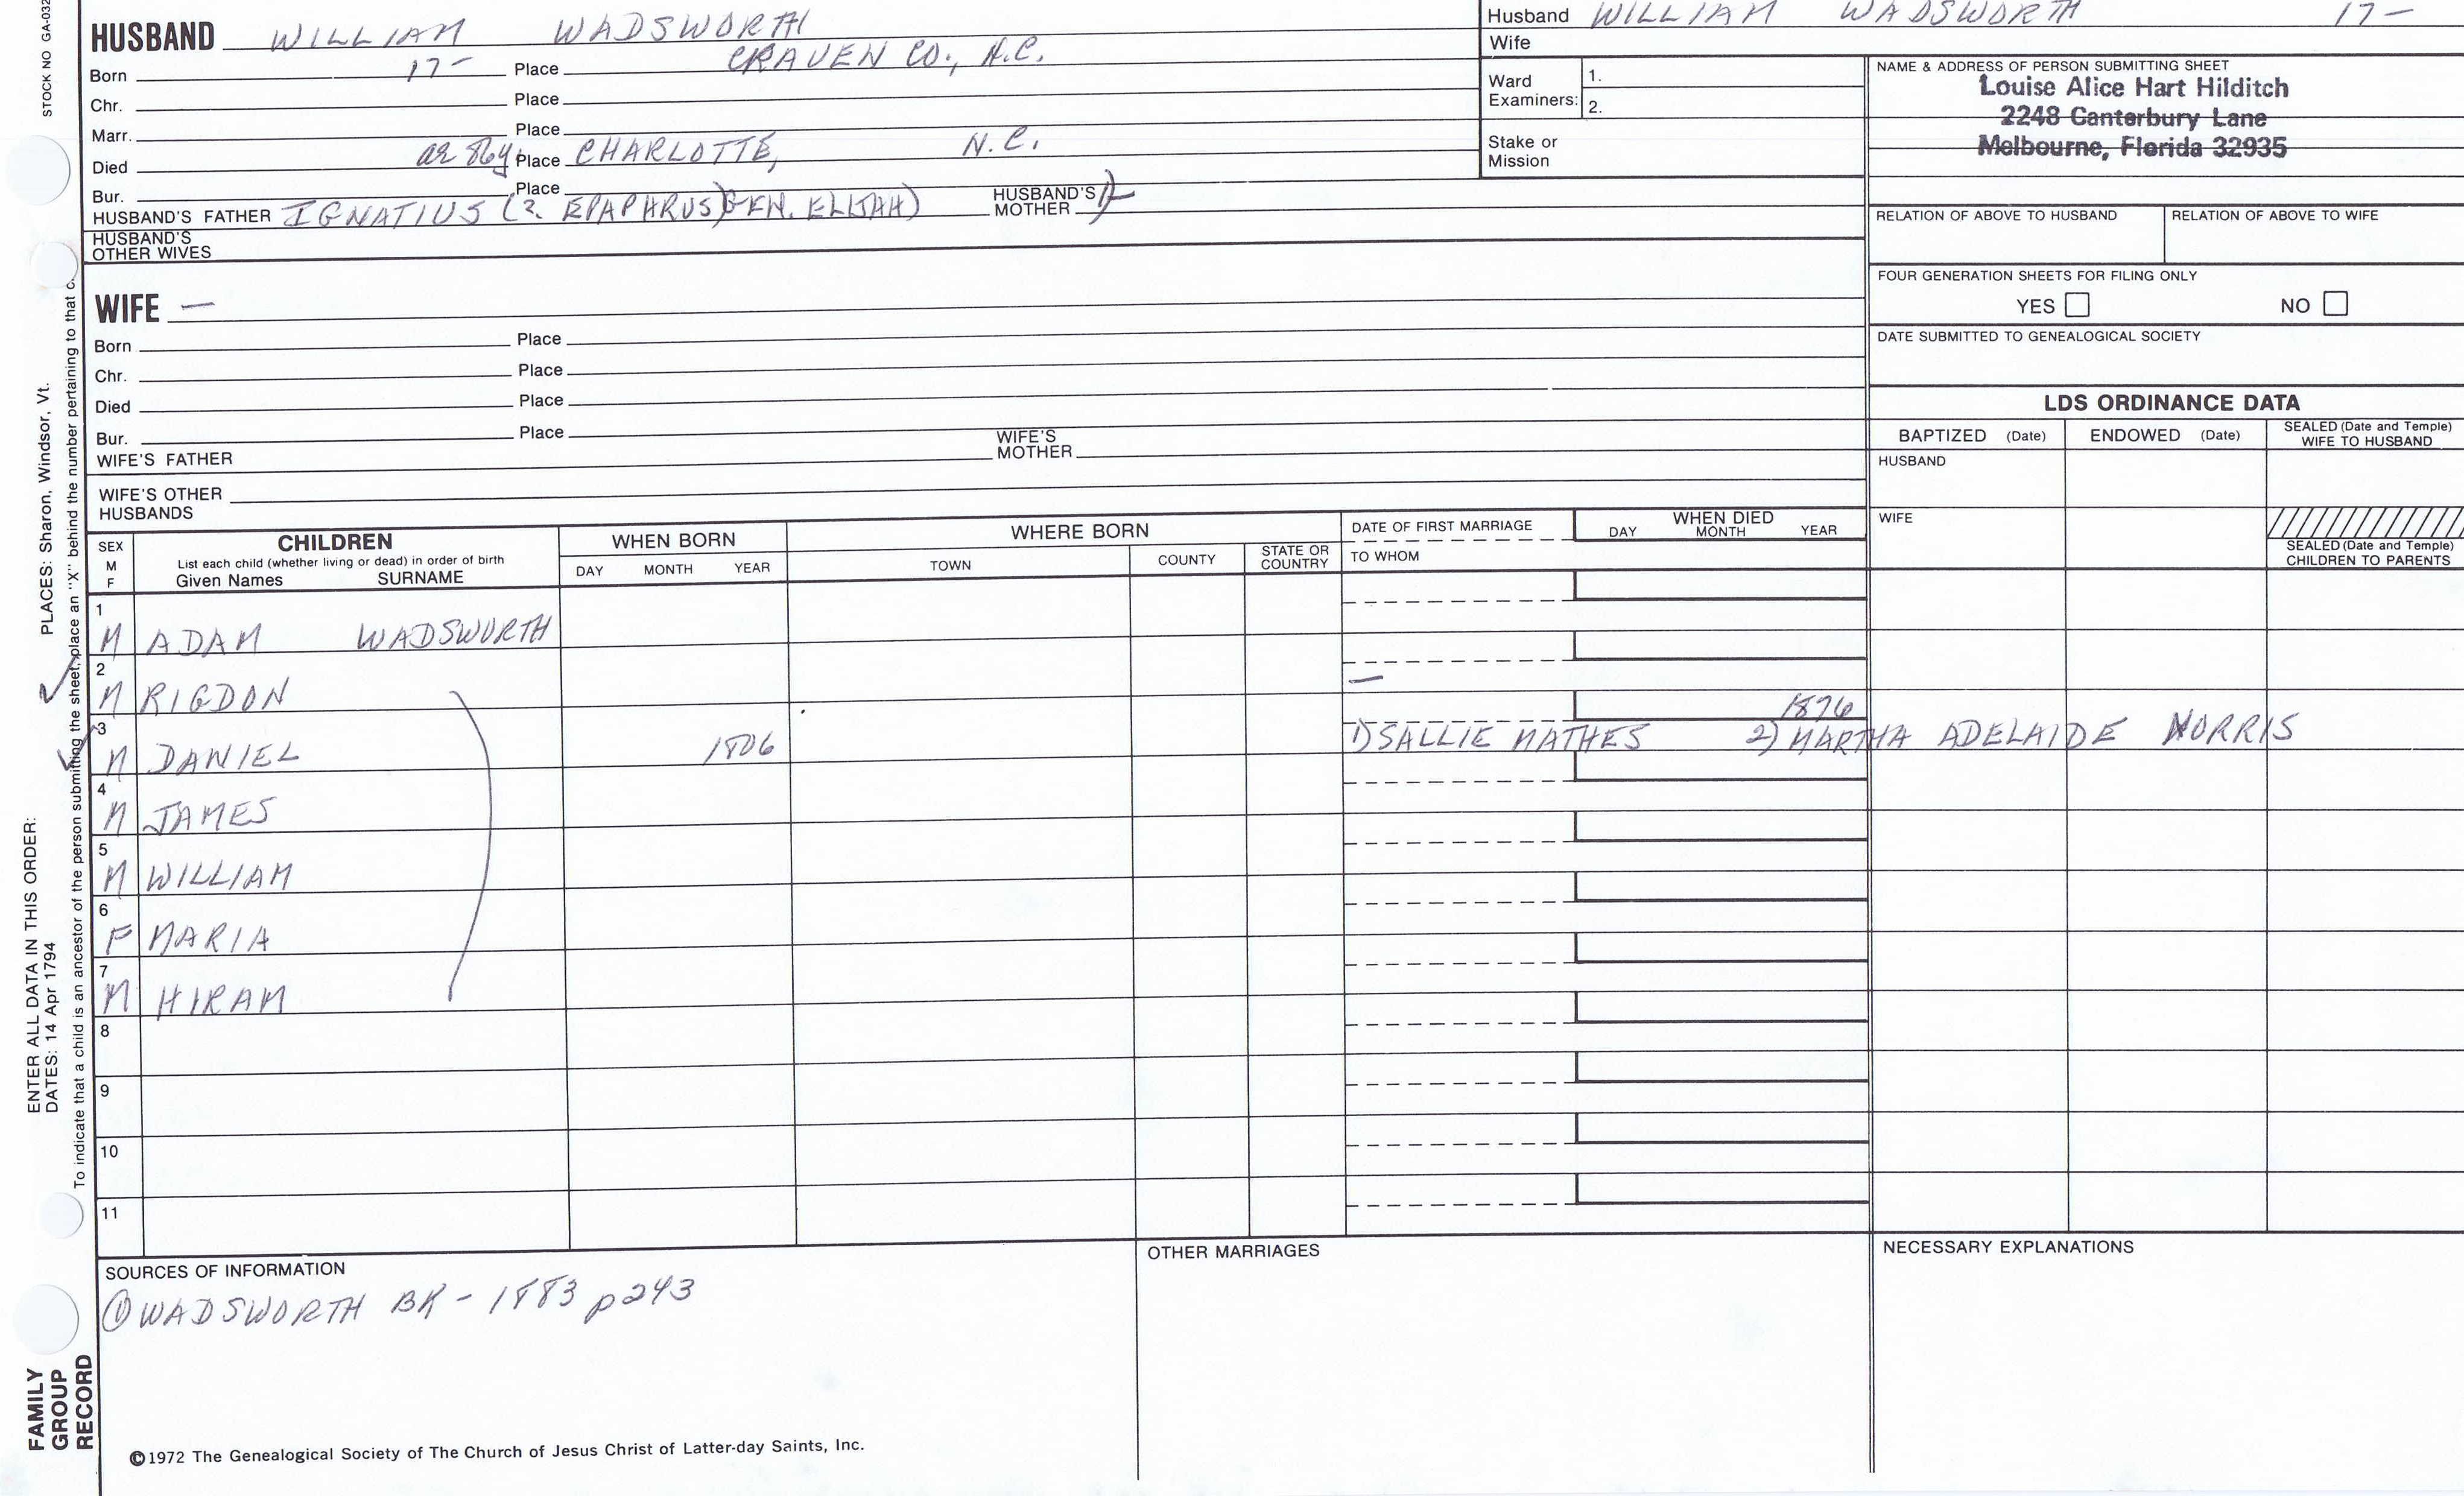 STOCK NO GA-032
HUSBAND WILLIAM WADSWORTH
Born 17- Place CRAVEN CO., N.C.
Chr. Place
Marr. Place
Died ae 86y. Place CHARLOTTE, N.C.
Bur. Place
HUSBAND'S FATHER IGNATIUS (2. EPAPHRUS) GEN. ELIJAH) HUSBAND'S MOTHER
HUSBAND'S OTHER WIVES
WIFE —
Born Place
Chr. Place
Died Place
Bur. Place
WIFE'S FATHER WIFE'S MOTHER
WIFE'S OTHER HUSBANDS
Husband WILLIAM WADSWORTH 17-
Wife
Ward Examiners: 1.
2.
Stake or Mission
NAME & ADDRESS OF PERSON SUBMITTING SHEET
Louise Alice Hart Hilditch
2248 Canterbury Lane
Melbourne, Florida 32935
RELATION OF ABOVE TO HUSBAND RELATION OF ABOVE TO WIFE
FOUR GENERATION SHEETS FOR FILING ONLY
YES NO
DATE SUBMITTED TO GENEALOGICAL SOCIETY
LDS ORDINANCE DATA
BAPTIZED (Date) ENDOWED (Date) SEALED (Date and Temple) WIFE TO HUSBAND
HUSBAND
WIFE
SEALED (Date and Temple) CHILDREN TO PARENTS
SEX M F
CHILDREN
List each child (whether living or dead) in order of birth
Given Names SURNAME
WHEN BORN
DAY MONTH YEAR
WHERE BORN
TOWN COUNTY STATE OR COUNTRY
DATE OF FIRST MARRIAGE
TO WHOM
WHEN DIED
DAY MONTH YEAR
1 M ADAM WADSWORTH
2 M RIGDON —
3 M DANIEL 1806 1876
1) SALLIE MATHES 2) MARTHA ADELAIDE NORRIS
4 M JAMES
5 M WILLIAM
6 F MARIA
7 M HIRAM
8
9
10
11
SOURCES OF INFORMATION
① WADSWORTH BK - 1883 p243
OTHER MARRIAGES
NECESSARY EXPLANATIONS
©1972 The Genealogical Society of The Church of Jesus Christ of Latter-day Saints, Inc.
FAMILY GROUP RECORD
ENTER ALL DATA IN THIS ORDER:
DATES: 14 Apr 1794
PLACES: Sharon, Windsor, Vt.
To indicate that a child is an ancestor of the person submitting the sheet, place an "X" behind the number pertaining to that